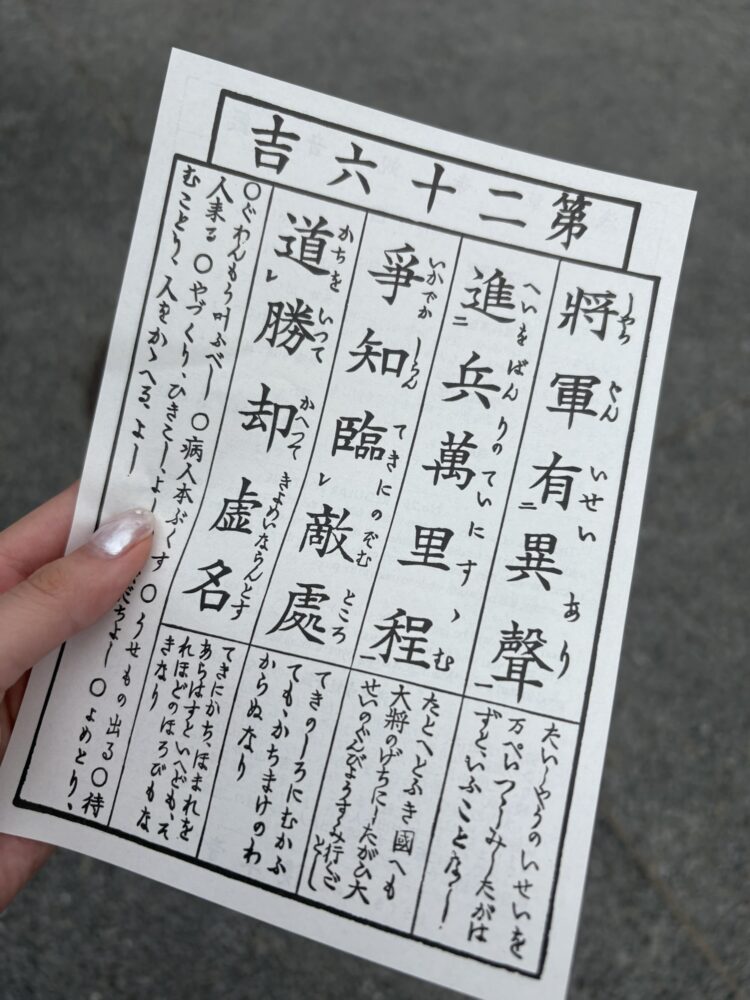 第二十六吉
將軍有異聲
しやうぐん いせい あり
二 一
たいしやうのいせいを
万ぺいつゝしみしたがは
ずといふことなし
進兵萬里程
へいをばんりのていにすゝむ
二 一
たとへとふき國へも
大將のげちにしたがひ大
せいのぐんびようすゝみ行ごとし
爭知臨敵處
いかでかしらんてきにのぞむところ
レ
てきのしろにむかふ
ても、かちまけのわ
からぬなり
道勝却虚名
かちをいつてかへつてきよめいならんとす
レ
てきにかち、ほまれを
あらはすといへども、そ
れほどのほろびもな
きなり
〇ぐわんもう叶ふべし 〇病人本ぶくす 〇うせもの出る 〇待
人来る 〇やづくり、ひきこし、よし だちよし 〇よめとり、
むことり、人をかゝへる、よし